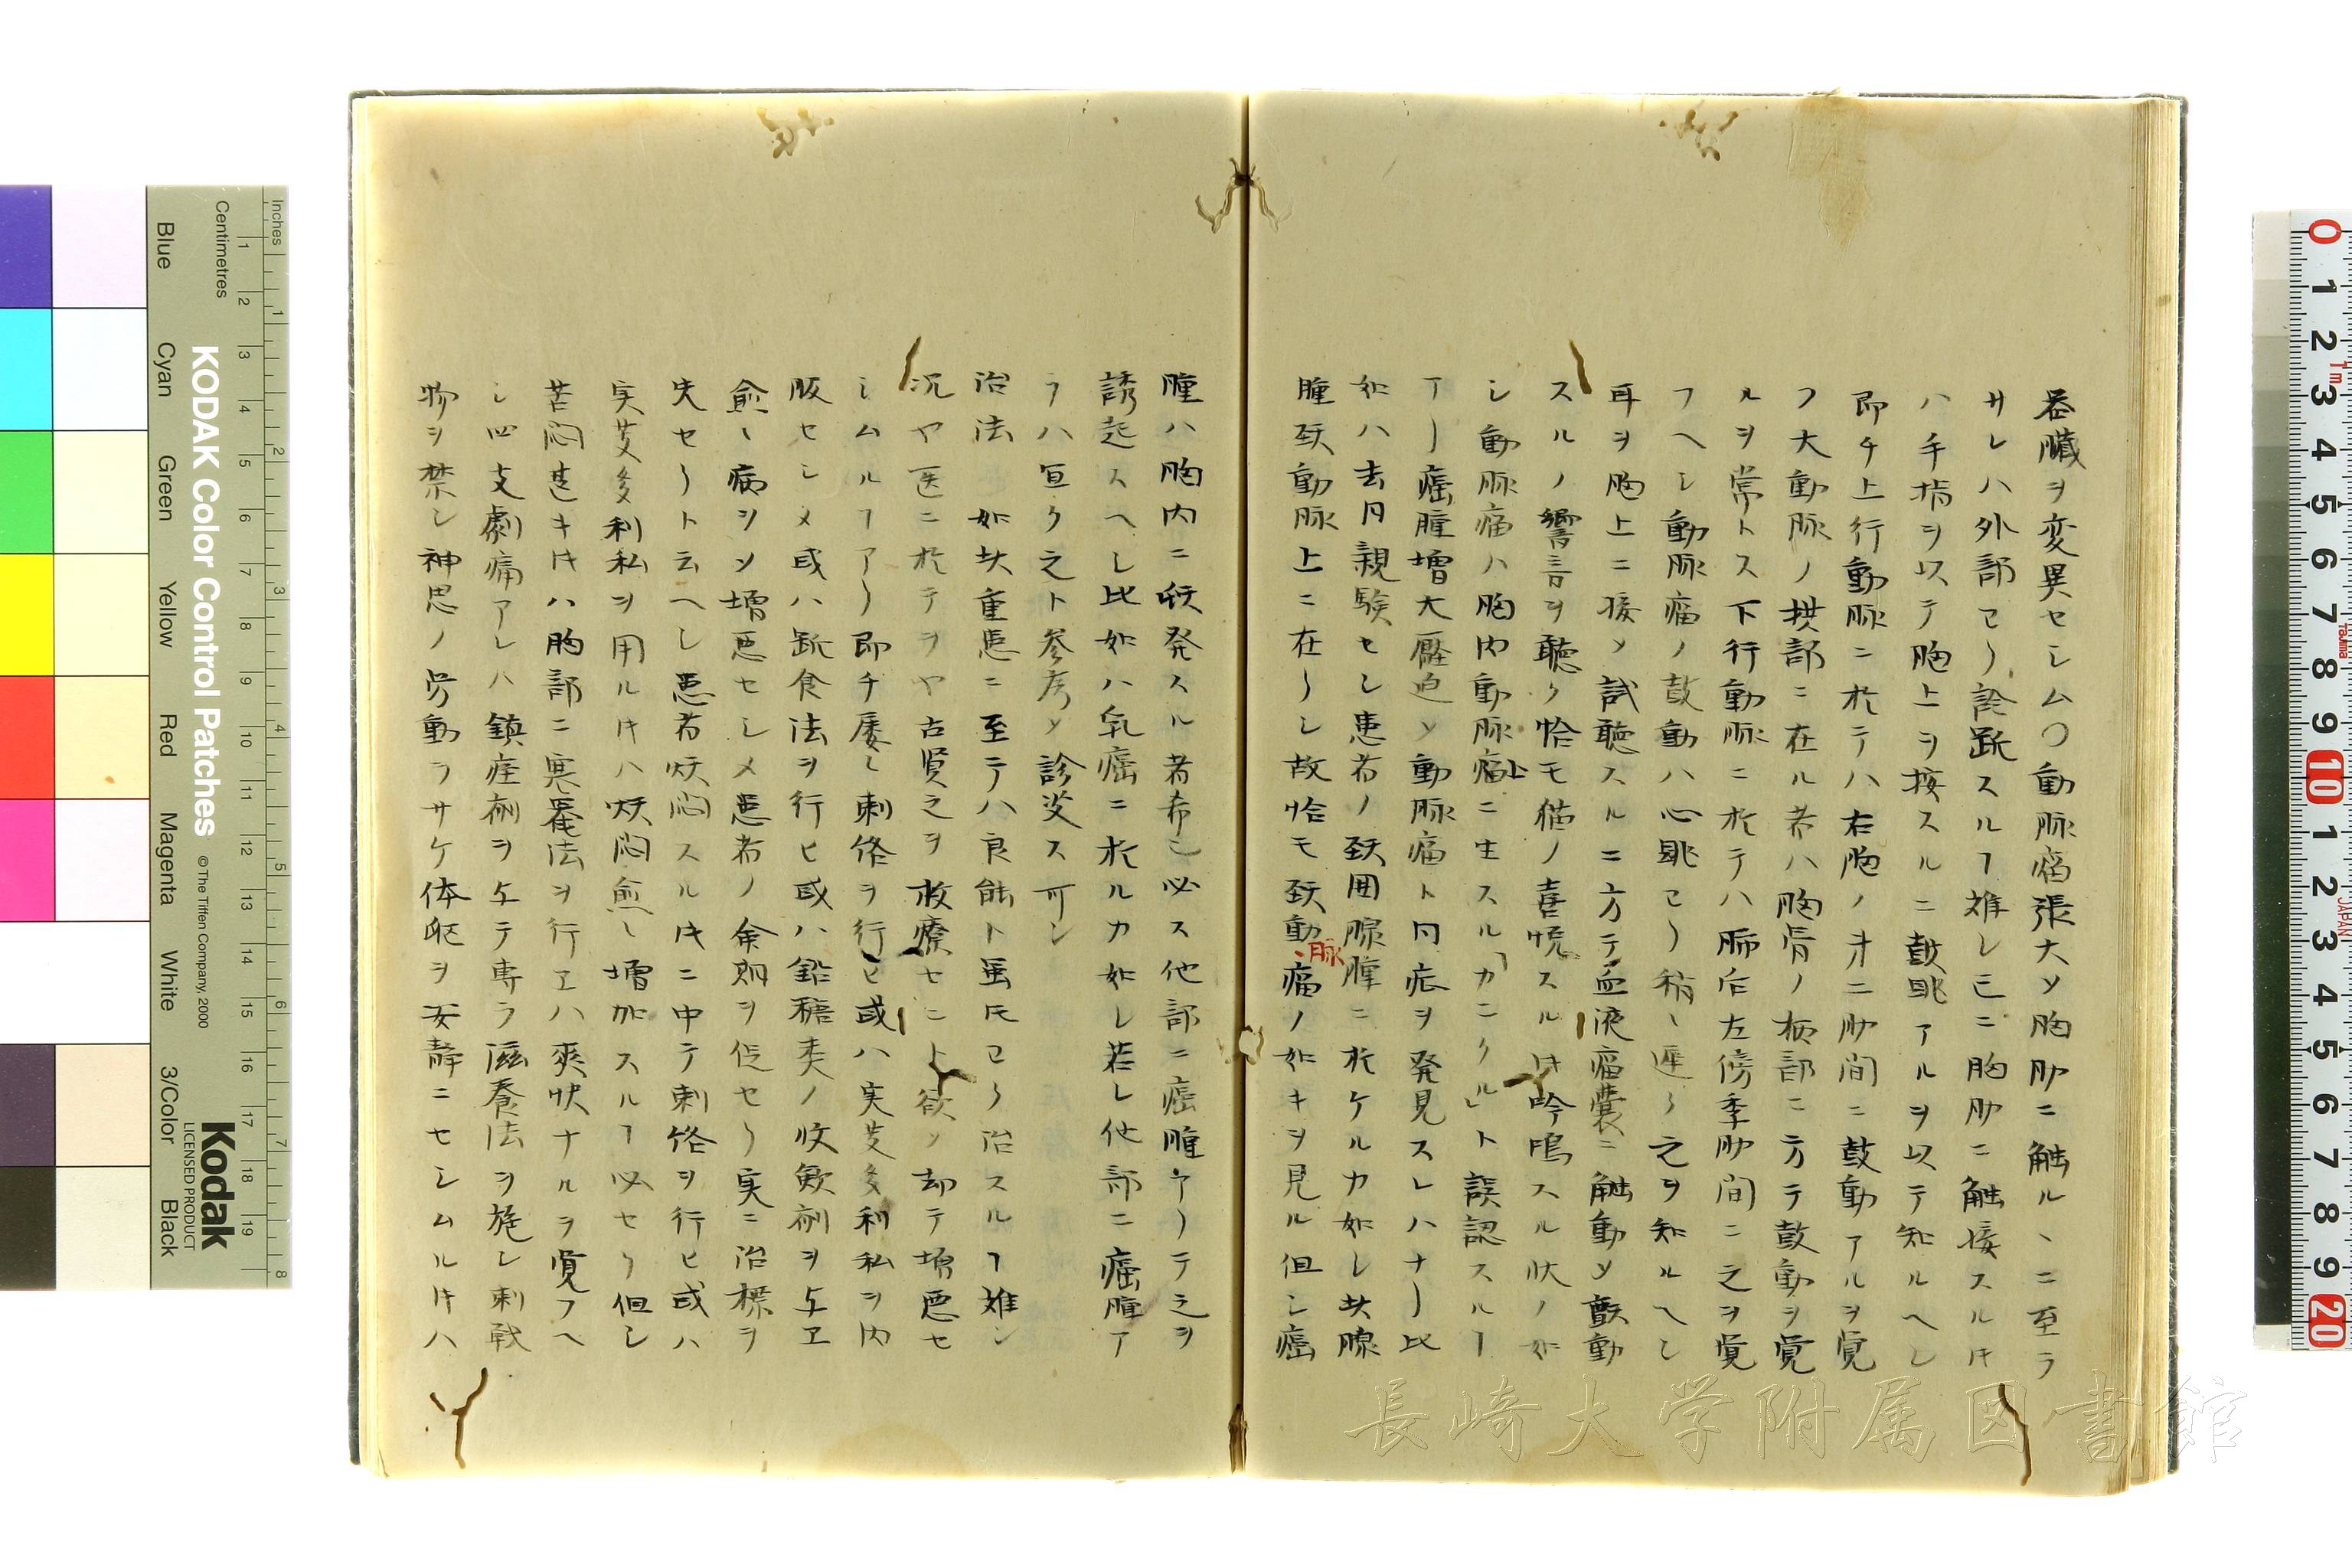 器臓ヲ変異セシム〇動脈瘤張大〆胸肋ニ触ルヽニ至ラ
サレハ外部ヨリ診趾スルヿ难レ已ニ胸肋ニ触接スルキ
ハ手指ヲ以テ胸上ヲ按スルニ鼓跳アルヲ以テ知ルヘレ
即チ上行動脈ニ於テハ右胸ノ才二肋间ニ鼓動アルヲ覚
フ大動脈ノ拱部ニ在ル者ハ胸骨ノ柄部ニ方テ鼓動ヲ覚
ルヲ常トス下行動脈ニ於テハ肺后左傍季肋间ニ之ヲ覚
フヘシ動脈瘤ノ鼓動ハ心跳ヨリ稍ヽ遅シ之ヲ知ルヘシ
耳ヲ胸上ニ接〆試聴スルニ方テ血液瘤囊ニ触動〆顫動
スルノ響音ヲ聴ク恰モ猫ノ喜悦スルキ吟鳴スル状ノ如
シ動脈瘤ハ胸内動脈瘤上ニ生スル「カンクル」ト誤認スルヿ
アリ癌腫増大壓迫〆動脈瘤ト同症ヲ発見スレハナリ比
如ハ去月親験セシ患者ノ頚囲腺腫ニ於ケルカ如レ其腺
腫頚動脈上ニ在リシ故恰モ頚動脈瘤ノ如キヲ見ル但シ癌
腫ハ胸内ニ発スル者希也必ス他部ニ癌腫アリテ之ヲ
誘起スヘレ比如ハ乳癌ニ於ルカ如レ若レ他部ニ癌腫ア
ラハ宜ク之ト参考〆診芟ス可シ
治法 如其重患ニ至テハ良能ト虽氏ヨリ治スルヿ难シ
况ヤ医ニ於テヲヤ古賢之ヲ救療セント欲〆却テ増悪セ
シムルヿアリ即チ屡々刺絡ヲ行ヒ或ハ実芟多利私ヲ内
服セシメ或ハ趾食法ヲ行ヒ或ハ鉛糖类ノ收歛剤ヲ与エ
愈ヽ病ヲ〆増悪セシメ患者ノ余期ヲ促セリ実ニ治標ヲ
失セリト云ヘレ患者妖悶スルキニ中テ刺絡ヲ行ヒ或ハ
実芟多利私ヲ用ルキハ妖悶愈ヽ増加スルヿ必セリ但シ
苦悶甚キキハ胸部ニ寒罨法ヲ行エハ爽快ナルヲ覚フヘ
シ四支劇痛アレハ鎮痙剤ヲ与テ専ラ滋養法ヲ施レ刺戟
物ヲ禁シ神思ノ労動ヲサケ体躯ヲ安静ニセシムルキハ
KODAK Color Control Patches
© The Tiffen Company, 2000
Kodak
LICENSED PRODUCT
Inches
Centimetres
Blue
Cyan
Green
Yellow
Red
Magenta
White
3/Color
Black
長崎大学附属図書館